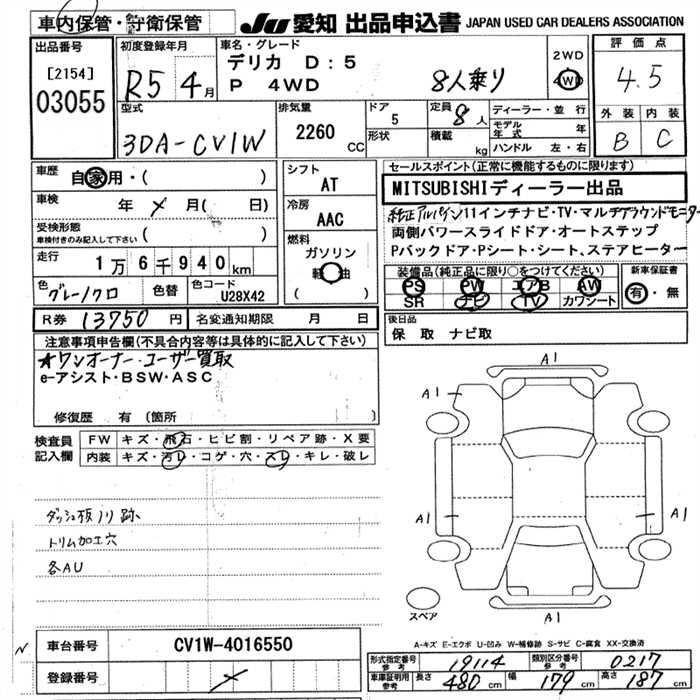 車内保管・守衛保管
JU 愛知 出品申込書 JAPAN USED CAR DEALERS ASSOCIATION
出品番号
[2154]
03055
初度登録年月
R5 4月
車名・グレード
デリカ D:5
P 4WD 8人乗り
2WD
4WD
評価点
4.5
外装 内装
B C
型式
3DA-CV1W
排気量
2260 CC
ドア
5
形状
定員 8人
積載 kg
ディーラー・並行
モデル年式 年
ハンドル 左・右
車歴 自家用・( )
車検 年 月( 日)
受検形態
車検付きのみ記入して下さい ( )
走行 1万6千940km
色 グレー/クロ 色替 色コード U28X42
シフト
AT
冷房
AAC
燃料
ガソリン
軽油
( )
セールスポイント(正常に機能するものに限ります)
MITSUBISHIディーラー出品
純正アルパイン11インチナビ・TV・マルチアラウンドモニター
両側パワースライドドア・オートステップ
Pバックドア・Pシート・シート、ステアヒーター
装備品(純正品に限り○をつけてください)
PS PW エアB AW
SR ナビ TV カワシート
新車保証書
有・無
R券 13750円 名変通知期限 月 日
後日品
保 取 ナビ取
注意事項申告欄(不具合内容等は具体的に記入して下さい)
★ワンオーナー・ユーザー買取
e-アシスト・BSW・ASC
修復歴 有(箇所
検査員記入欄
FW キズ・飛石・ヒビ割・リペア跡・X要
内装 キズ・汚レ・コゲ・穴・スレ・キレ・破レ
ダッシュ板ノリ跡
トリム加工穴
各AU
A1
A1
A1
A1
A1
スペア
A-キズ E-エクボ U-凹み W-補修跡 S-サビ C-腐食 XX-交換済
車台番号 CV1W-4016550
登録番号
形式指定番号 参考 19114 類別区分番号 参考 0217
車庫証明用 参考 長さ 480cm 幅 179cm 高さ 187cm